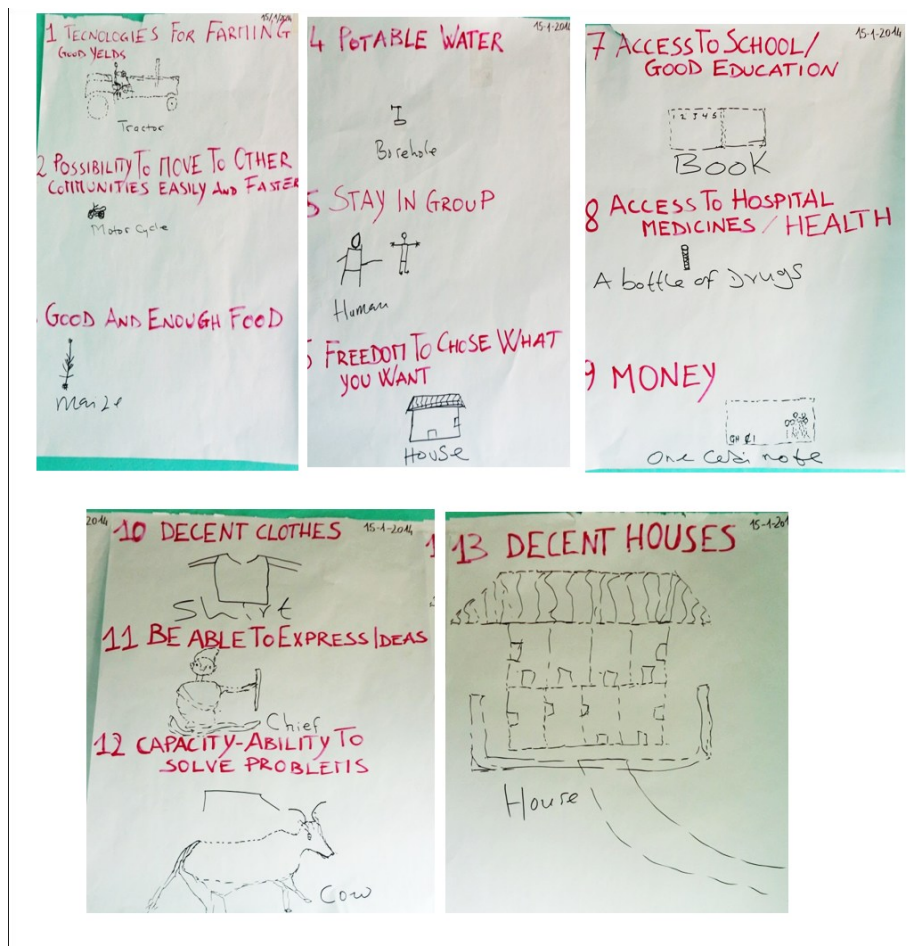 15/1/2014
1 TECNOLOGIES FOR FARMING
GOOD YELDS
Tractor
2 POSSIBILITY TO MOVE TO OTHER
COMMUNITIES EASILY AND FASTER
Motor Cycle
GOOD AND ENOUGH FOOD
Maize
15-1-2014
4 POTABLE WATER
Borehole
5 STAY IN GROUP
Human
FREEDOM TO CHOSE WHAT
YOU WANT
House
15-1-2014
7 ACCESS TO SCHOOL/
GOOD EDUCATION
1 2 3 4 5
BOOK
8 ACCESS TO HOSPITAL
MEDICINES / HEALTH
A bottle of Drugs
9 MONEY
GH ₵1
One Cedi note
2014
15-1-2014
10 DECENT CLOTHES
Shirt
11 BE ABLE TO EXPRESS IDEAS
Chief
12 CAPACITY-ABILITY TO
SOLVE PROBLEMS
Cow
15-1-201
13 DECENT HOUSES
House